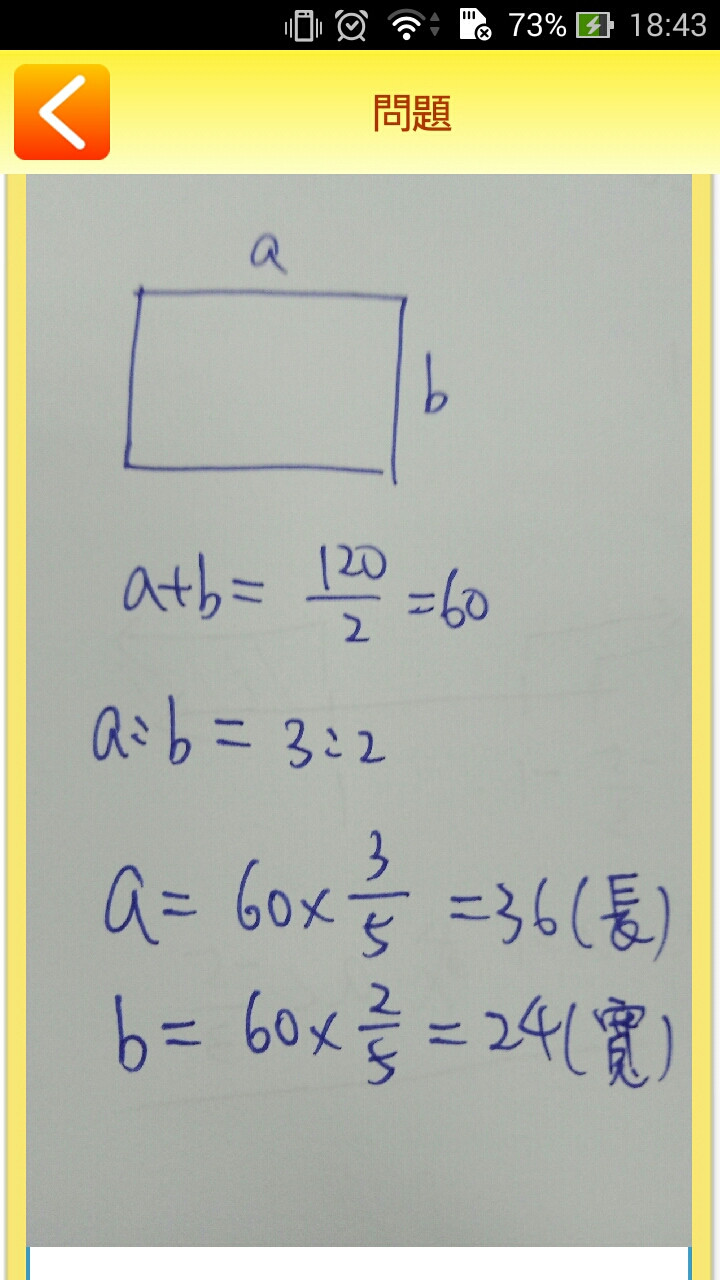 73% 18:43
問題
a
b
a+b = 120/2 = 60
a:b = 3:2
a = 60 × 3/5 = 36 (長)
b = 60 × 2/5 = 24 (寬)